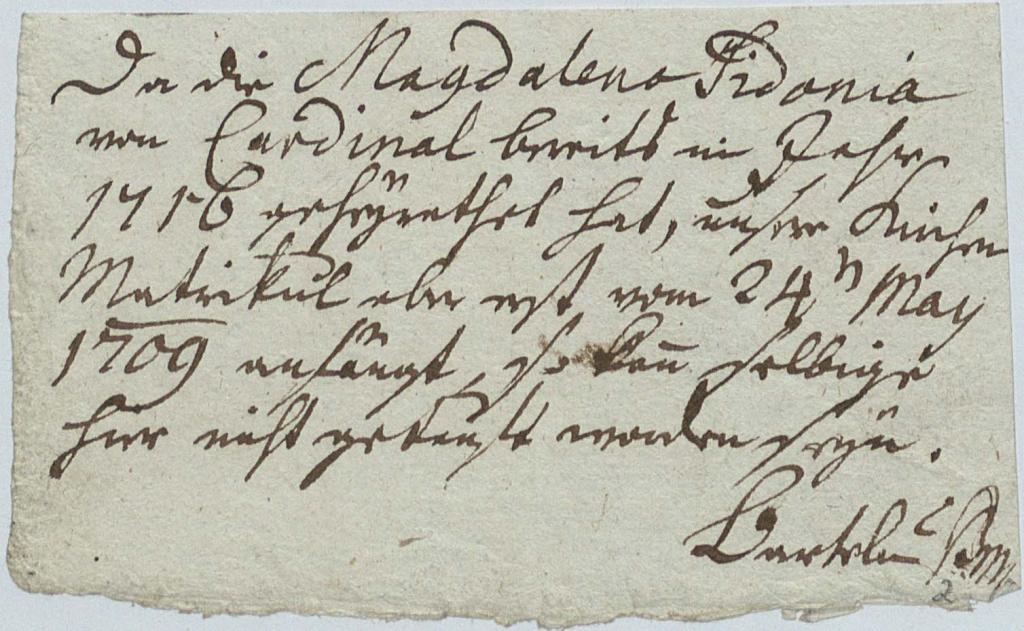 Da die Magdalena Sidonia
von Cardinal bereits im Jahr
1716 geheÿrathet hat, unsere Kirchen
Matrikul aber erst vom 24n May
1709 anfängt, so kan selbige
hier nicht getauft worden seÿn.
2